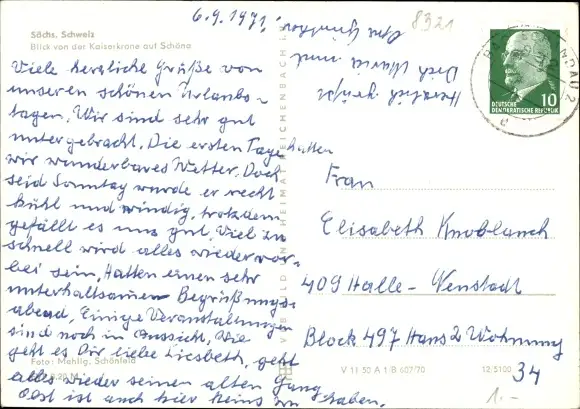 6.9.1971.
8321
Sächs. Schweiz
Blick von der Kaiserkrone auf Schöna
Viele herzliche Grüße von
unseren schönen Urlaubs-
tagen. Wir sind sehr gut
untergebracht. Die ersten Tage hatten
wir wunderbares Wetter. Doch
seid Sonntag wurde er recht
kühl und windig, trotzdem
gefällt es uns gut. Viel zu
schnell wird alles wieder vor-
bei sein. Hatten einen sehr
unterhaltsamen Begrüßungs-
abend. Einige Veranstaltungen
sind noch in Aussicht. Wie
geht es Dir liebe Liesbeth, geht
alles wieder seinen alten Gang
Obst ist auch hier keins zu haben.
Herzlich grüßt
Dich Maria und
Foto: Mahlig, Schönfeld
VEB BILD UND HEIMAT REICHENBACH
DEUTSCHE
DEMOKRATISCHE REPUBLIK
10
BAD SCHANDAU 2
Frau
Elisabeth Knoblauch
409 Halle-Neustadt
Block 497 Haus 2 Wohnung
34
V 11 50 A 1/B 607/70
12/5100
1.-